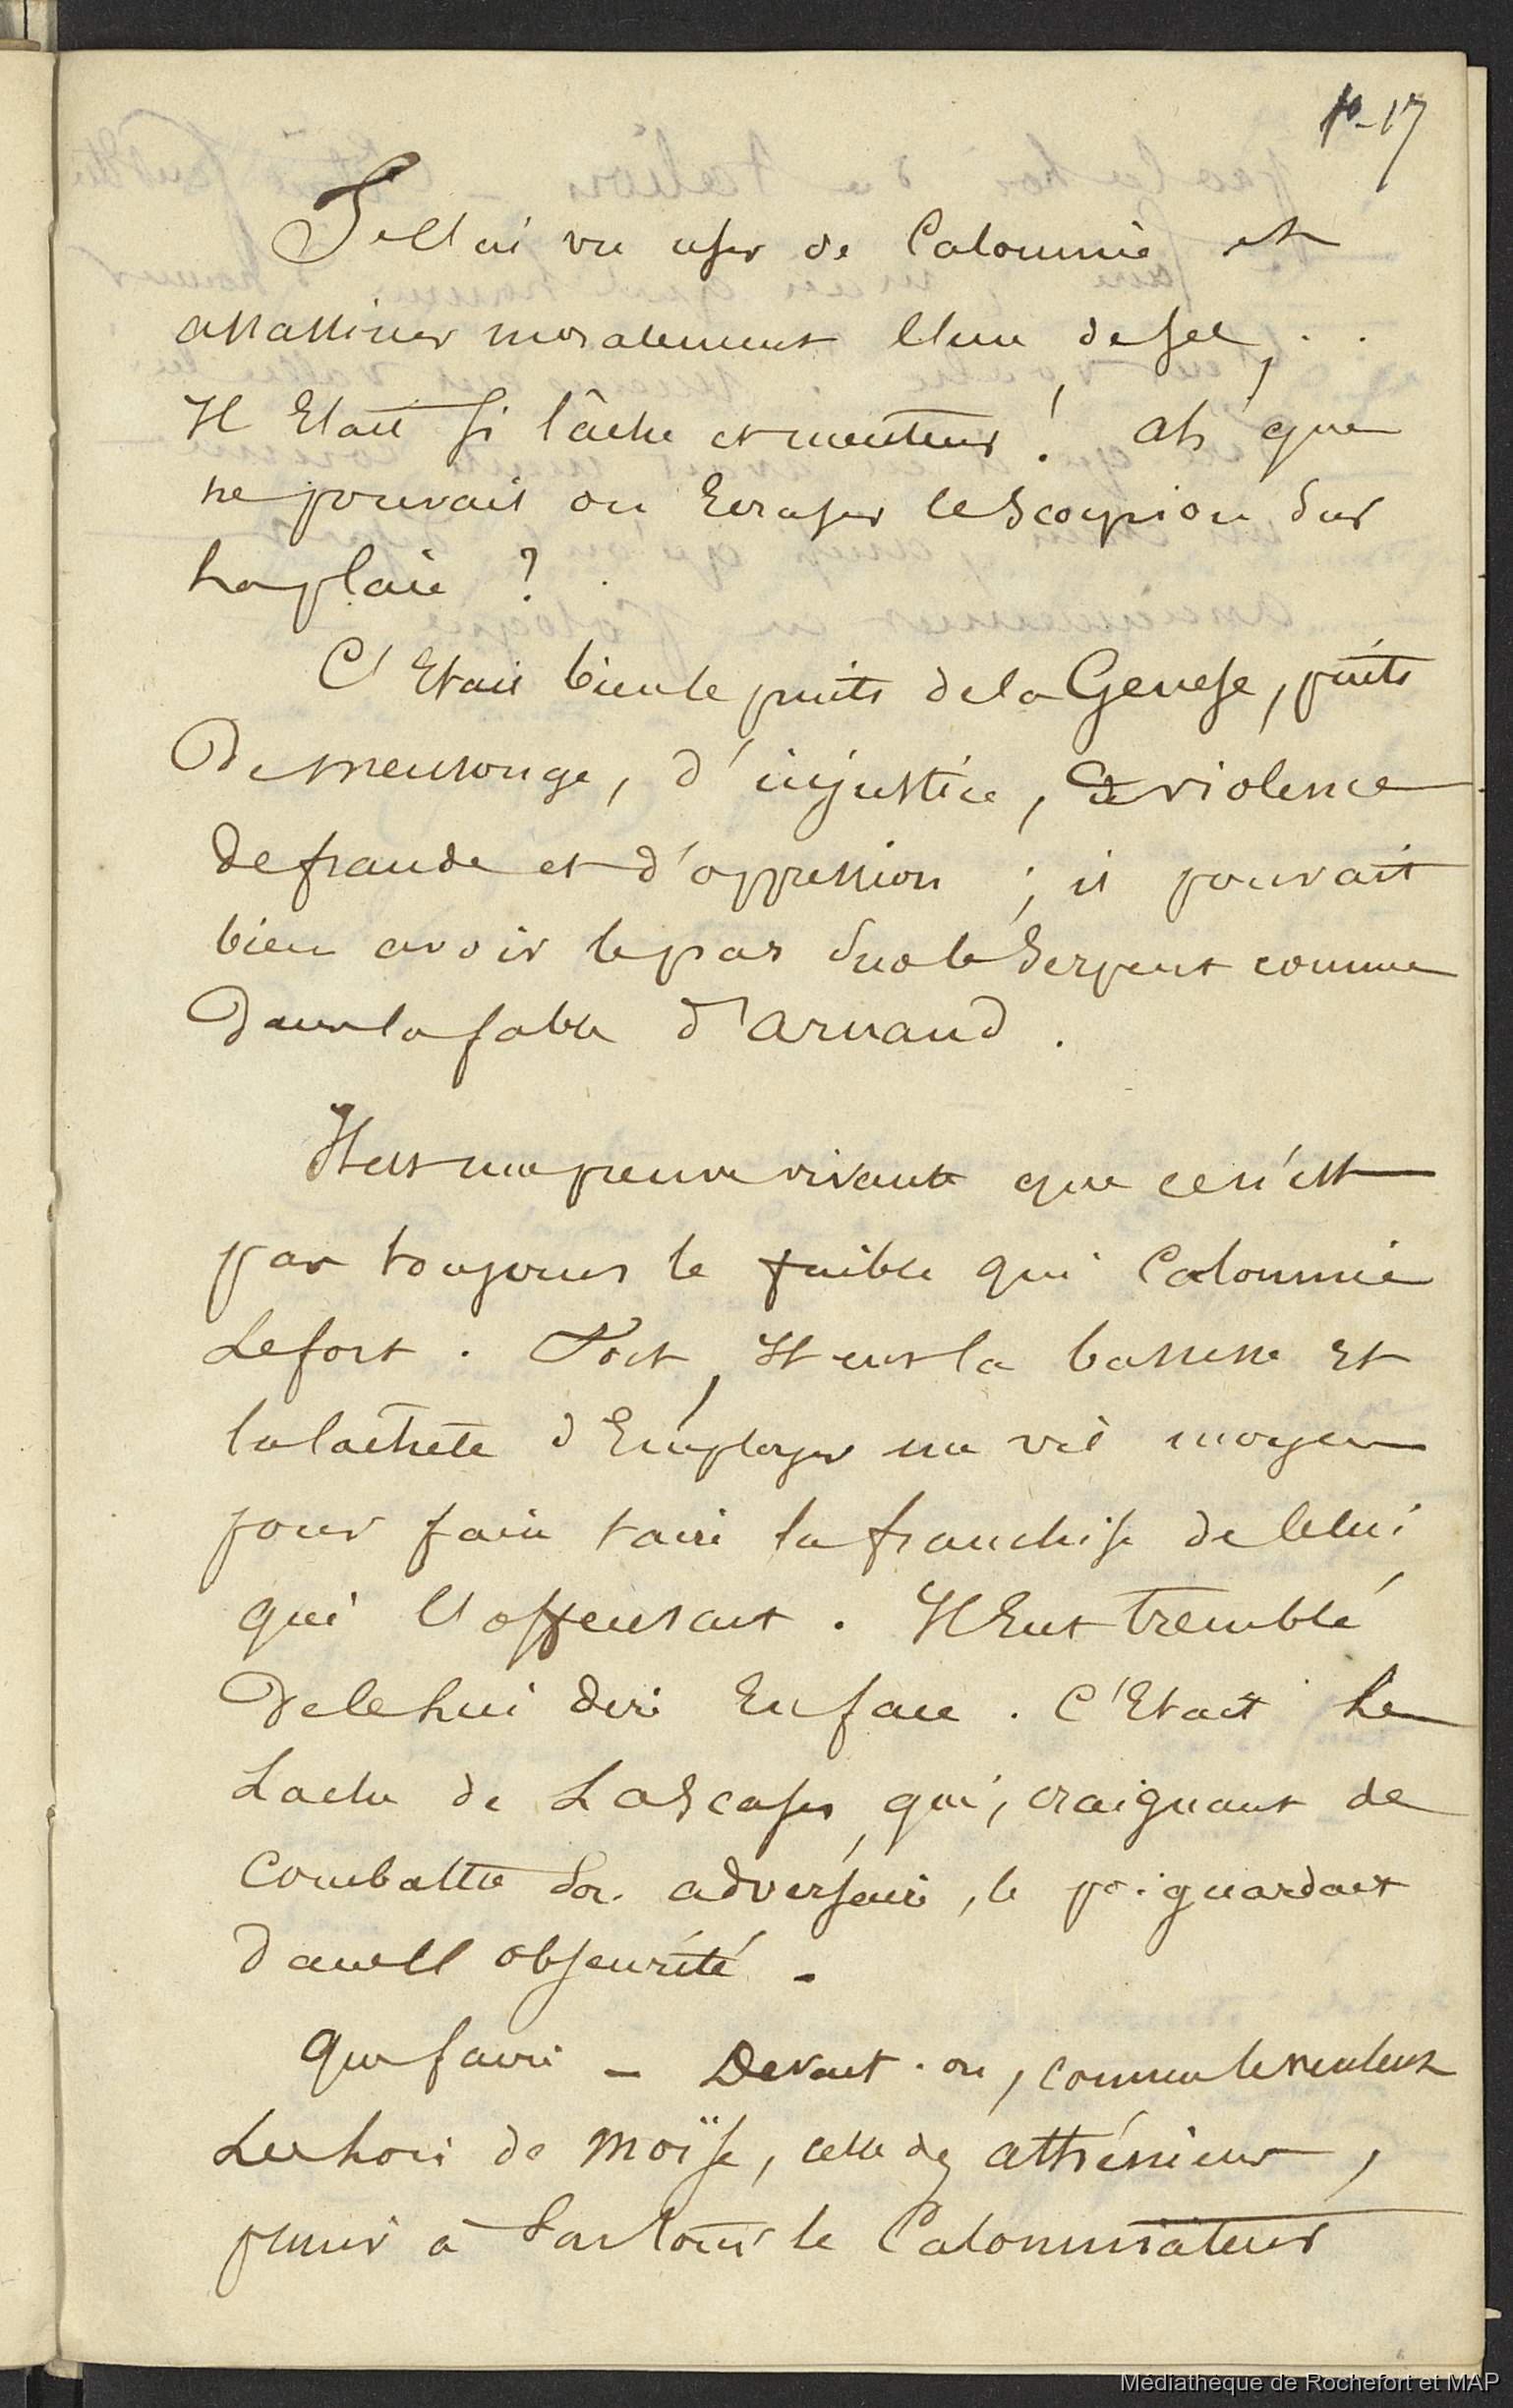 p-17
Je l'ai vu user de Calomnie et
assassiner moralement l'un de ses, . .
Il Etait si lâche et menteur ! ah que
ne pouvait on Ecraser le Scorpion sur
la plaie ?
C'Etait bien le puits de la Genese, puits
De mensonge, d'injustice, de violence
de fraude et d'oppression ; il pouvait
bien avoir le pas sur le Serpent comme
Dans la fable d'Arnaud .
Il est une preuve vivante que ce n'est
pas toujours le faible qui Calomnie
Le fort . Fort, Il eut la bassesse Et
la lacheté d'Employer un vil moyen
pour faire taire la franchise de celui
qui l'offensait . Il Eut tremblé
De le lui dire En face . C'Etait le
Lache de Las Cases, qui, craignant de
Combattre son adversaire, le poignardait
dans l'obscurité .
Que faire - Devait-on, comme le veulent
Les lois de Moïse, celle des athéniens,
punir à son tour le Calomniateur
Médiathèque de Rochefort et MAP